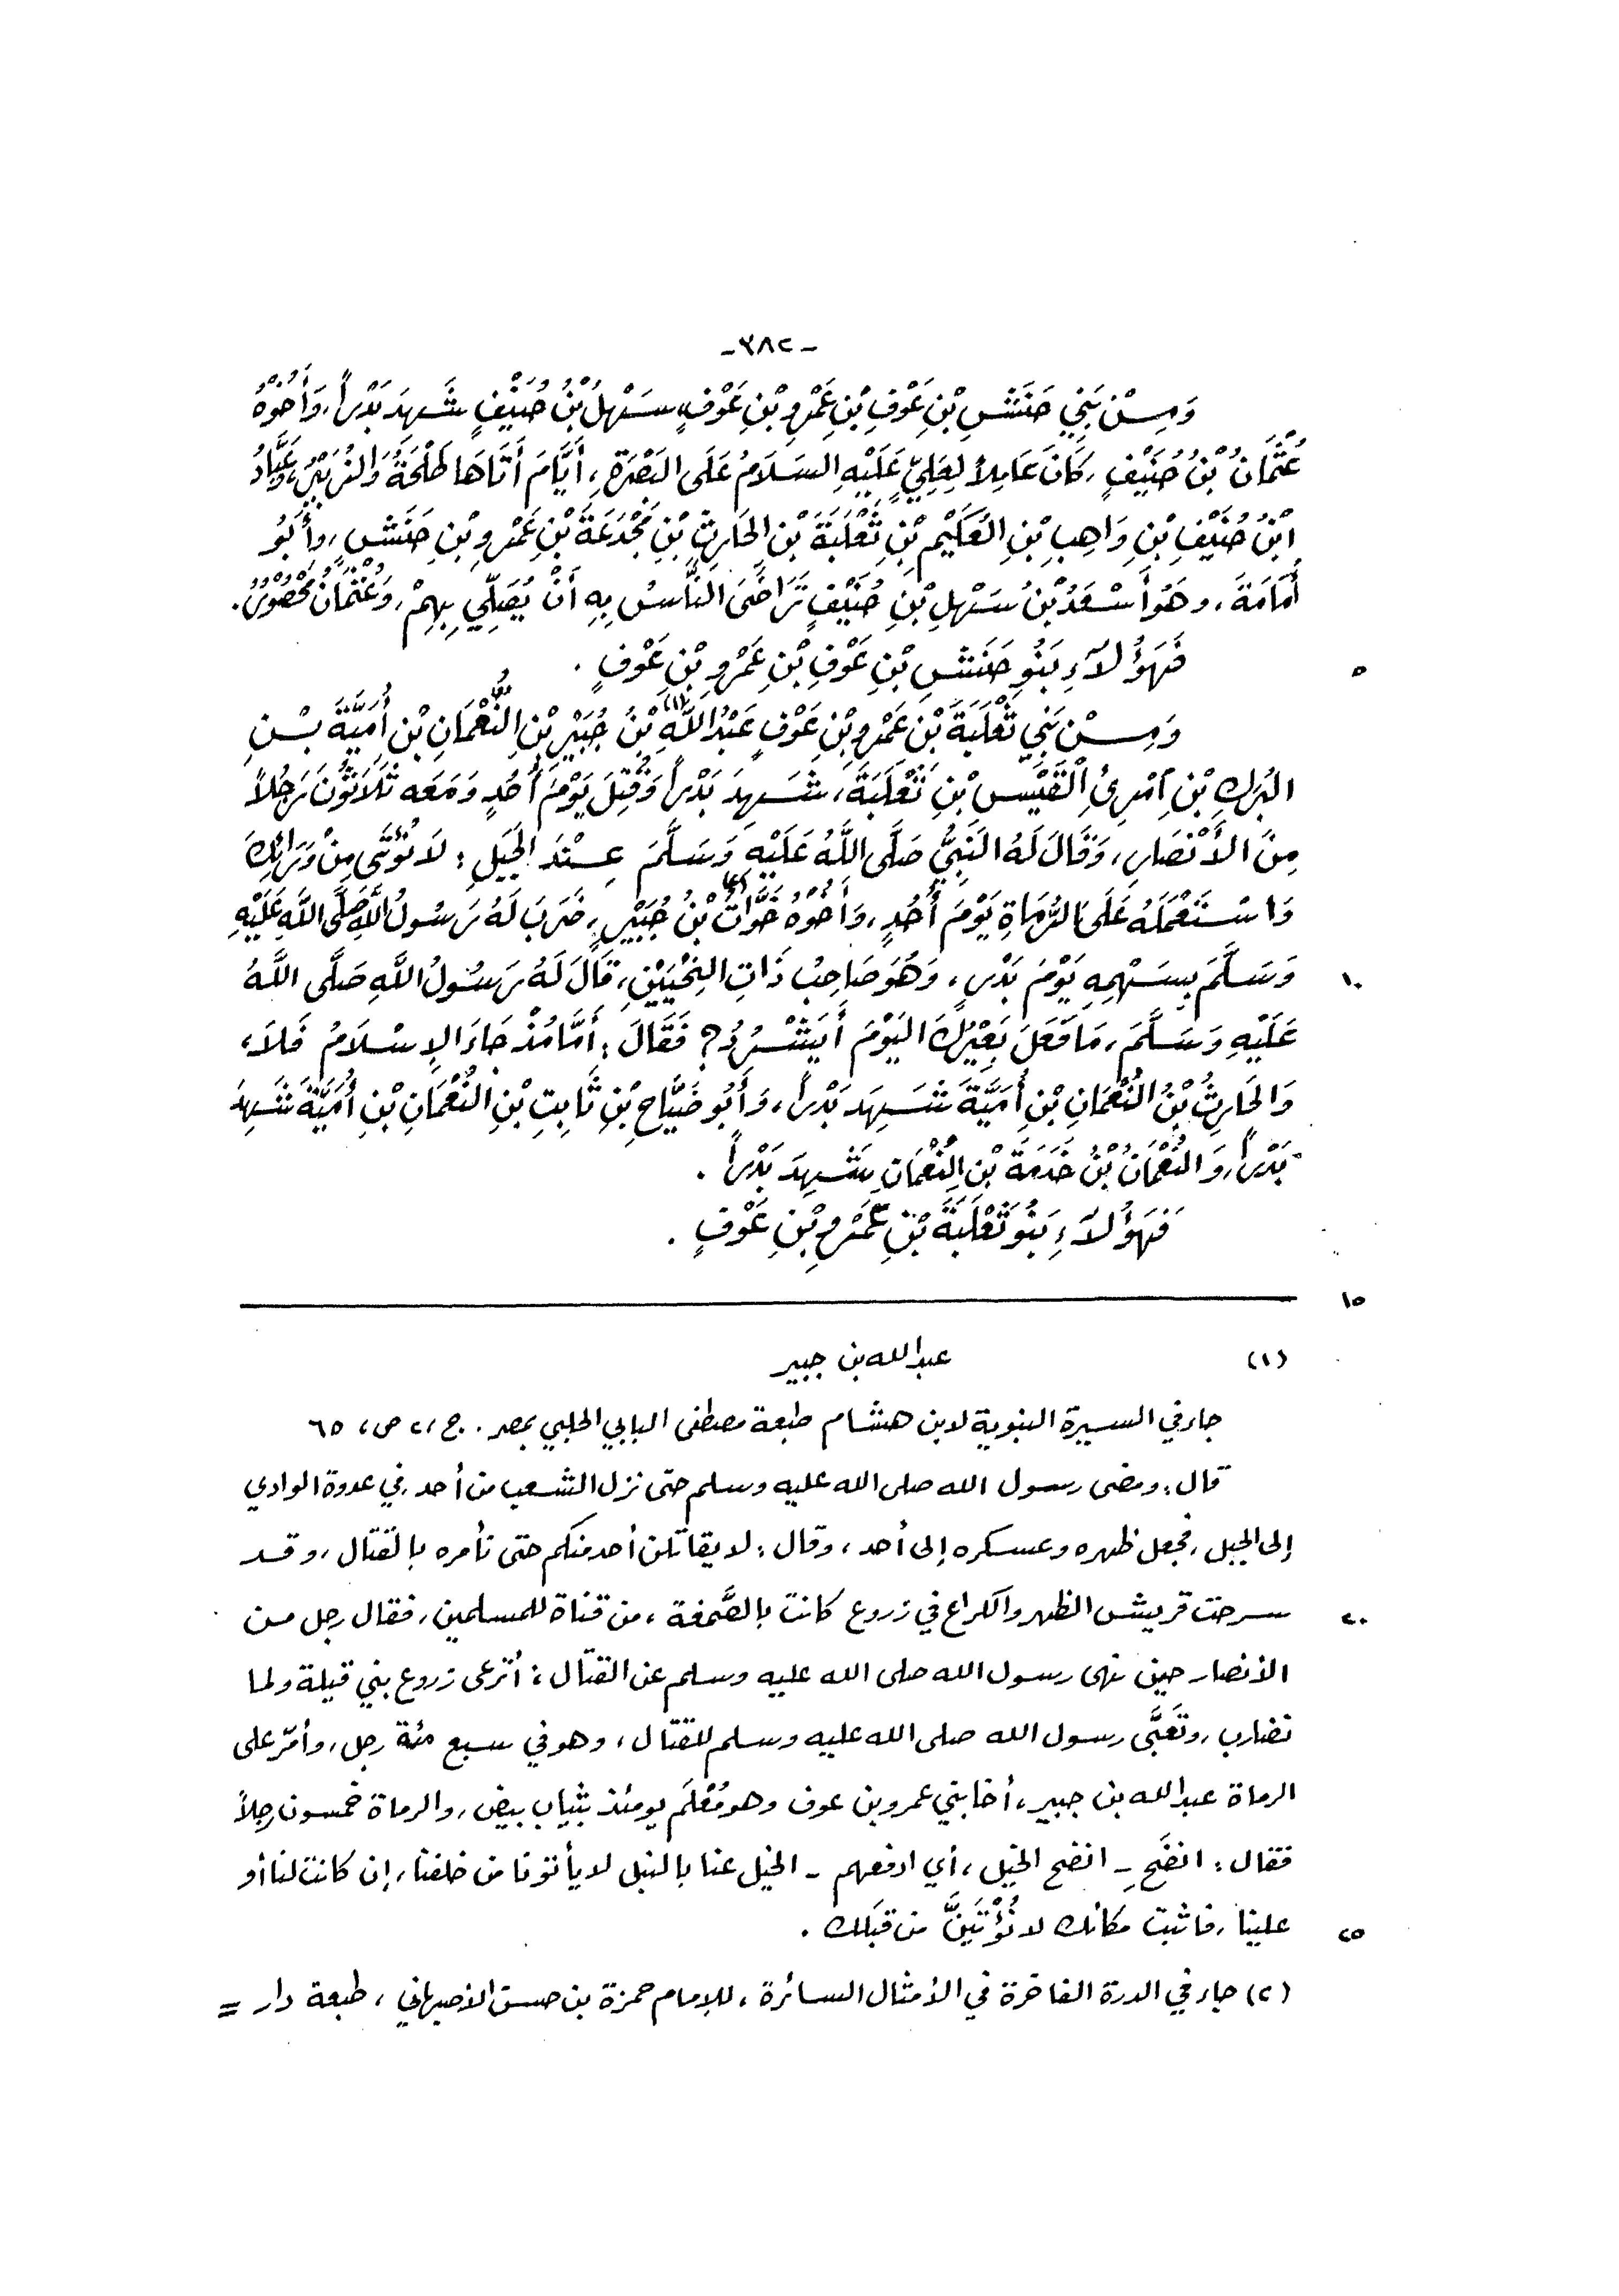 -٣٨٢-
وَمِنْ بَنِي حَنَشِ بْنِ عَوْفِ بْنِ عَمْرِو بْنِ عَوْفٍ، سَهْلُ بْنُ حُنَيْفٍ شَهِدَ بَدْراً، وَأَخُوهُ
عُثْمَانُ بْنُ حُنَيْفٍ، كَانَ عَامِلاً لِعَلِيٍّ عَلَيْهِ السَلَامُ عَلَى البَصْرَةِ، أَيَّامَ أَتَاهَا طَلْحَةُ وَالزُبَيْرُ، وَعَبَّادُ
ابْنُ حُنَيْفِ بْنِ وَاهِبِ بْنِ العُكَيْمِ بْنِ ثَعْلَبَةَ بْنِ الحَارِثِ بْنِ مَجْدَعَةَ بْنِ عَمْرِو بْنِ حَنَشٍ، وأَبُو
أُمَامَةَ، وهُوَ أَسْعَدُ بْنُ سَهْلِ بْنِ حُنَيْفٍ تَرَاضَى النَّاسُ بِهِ أَنْ يُصَلِّي بِهِمْ، وَعُثْمَانُ مَحْصُورٌ.
فَهَؤُلاَءِ بَنُو حَنَشِ بْنِ عَوْفِ بْنِ عَمْرِو بْنِ عَوْفٍ . ٥
وَمِنْ بَنِي ثَعْلَبَةَ بْنِ عَمْرِو بْنِ عَوْفٍ عَبْدُ اللَّهِ (١) بْنُ جُبَيْرِ بْنِ النُّعْمَانِ بْنِ أُمَيَّةَ بْنِ
البُرَكِ بْنِ امْرِئِ القَيْسِ بْنِ ثَعْلَبَةَ، شَهِدَ بَدْراً وَقُتِلَ يَوْمَ أُحُدٍ وَمَعَه ثَلَاثُونَ رَجُلاً
مِنَ الأَنْصَارِ، وَقَالَ لَهُ النَبِيُّ صَلَّى اللَّهُ عَلَيْهِ وَسَلَّمَ عِنْدَ الجَبَلِ: لَا نُؤْتَى مِنْ وَرَائِكَ
وَاسْتَعْمَلَهُ عَلَى الرُمَاةِ يَوْمَ أُحُدٍ، وَأَخُوهُ خَوَّاتُ (٢) بْنُ جُبَيْرٍ، ضَرَبَ لَهُ رَسُولُ اللَّهِ صَلَّى اللَّهُ عَلَيْهِ
وَسَلَّمَ بِسَهْمِهِ يَوْمَ بَدْرٍ، وَهُوَ صَاحِبُ ذَاتِ النِحْيَيْنِ، قَالَ لَهُ رَسُولُ اللَّهِ صَلَّى اللَّهُ ١٠
عَلَيْهِ وَسَلَّمَ، مَا فَعَلَ بَعِيْرُكَ اليَوْمَ أَيَشْرُدُ؟ فَقَالَ: أَمَّا مُنْذُ جَاءَ الإِسْلَامُ فَلاَ،
وَالحَارِثُ بْنُ النُعْمَانِ بْنِ أُمَيَّةَ شَهِدَ بَدْراً، وَأَبُو ضَيَّاحِ بْنِ ثَابِتِ بْنِ النُعْمَانِ بْنِ أُمَيَّةَ شَهِدَ
بَدْراً، وَالنُعْمَانُ بْنُ خَدَمَةَ بْنِ النُعْمَانِ شَهِدَ بَدْراً .
فَهَؤُلاَءِ بَنُو ثَعْلَبَةَ بْنِ عَمْرِو بْنِ عَوْفٍ .
١٥
(١) عبدالله بن جبير
جاء في السيرة النبوية لابن هشام طبعة مصطفى البابي الحلبي بمصر . ج، ٢ ص، ٦٥
قال: ومضى رسول الله صلى الله عليه وسلم حتى نزل الشعب من أحد، في عدوة الوادي
إلى الجبل، فجعل ظهره وعسكره إلى أحد، وقال: لا يقاتلن أحد منكم حتى نأمره بالقتال، وقد
سرحت قريش الظهر والكراع في زروع كانت بالصَّمغة، من قناة للمسلمين، فقال رجل من ٢٠
الأنصار حين نهى رسول الله صلى الله عليه وسلم عن القتال: أترعى زروع بني قيلة ولما
نضارب، وتَعَبَّى رسول الله صلى الله عليه وسلم للقتال، وهو في سبع مئة رجل، وأمّر على
الرماة عبدالله بن جبير، أخا بني عمرو بن عوف وهو مُعْلَم يومئذ بثياب بيض، والرماة خمسون رجلاً
فقال: انضَحِ - انضح الخيل، أي ادفعهم - الخيل عنا بالنبل لا يأتونا من خلفنا، إن كانت لنا أو
علينا، فاثبت مكانك لا نُؤْتَيَنَّ من قبَلك . ٢٥
(٢) جاء في الدرة الفاخرة في الأمثال السائرة، للإمام حمزة بن حسن الأصبهاني، طبعة دار =